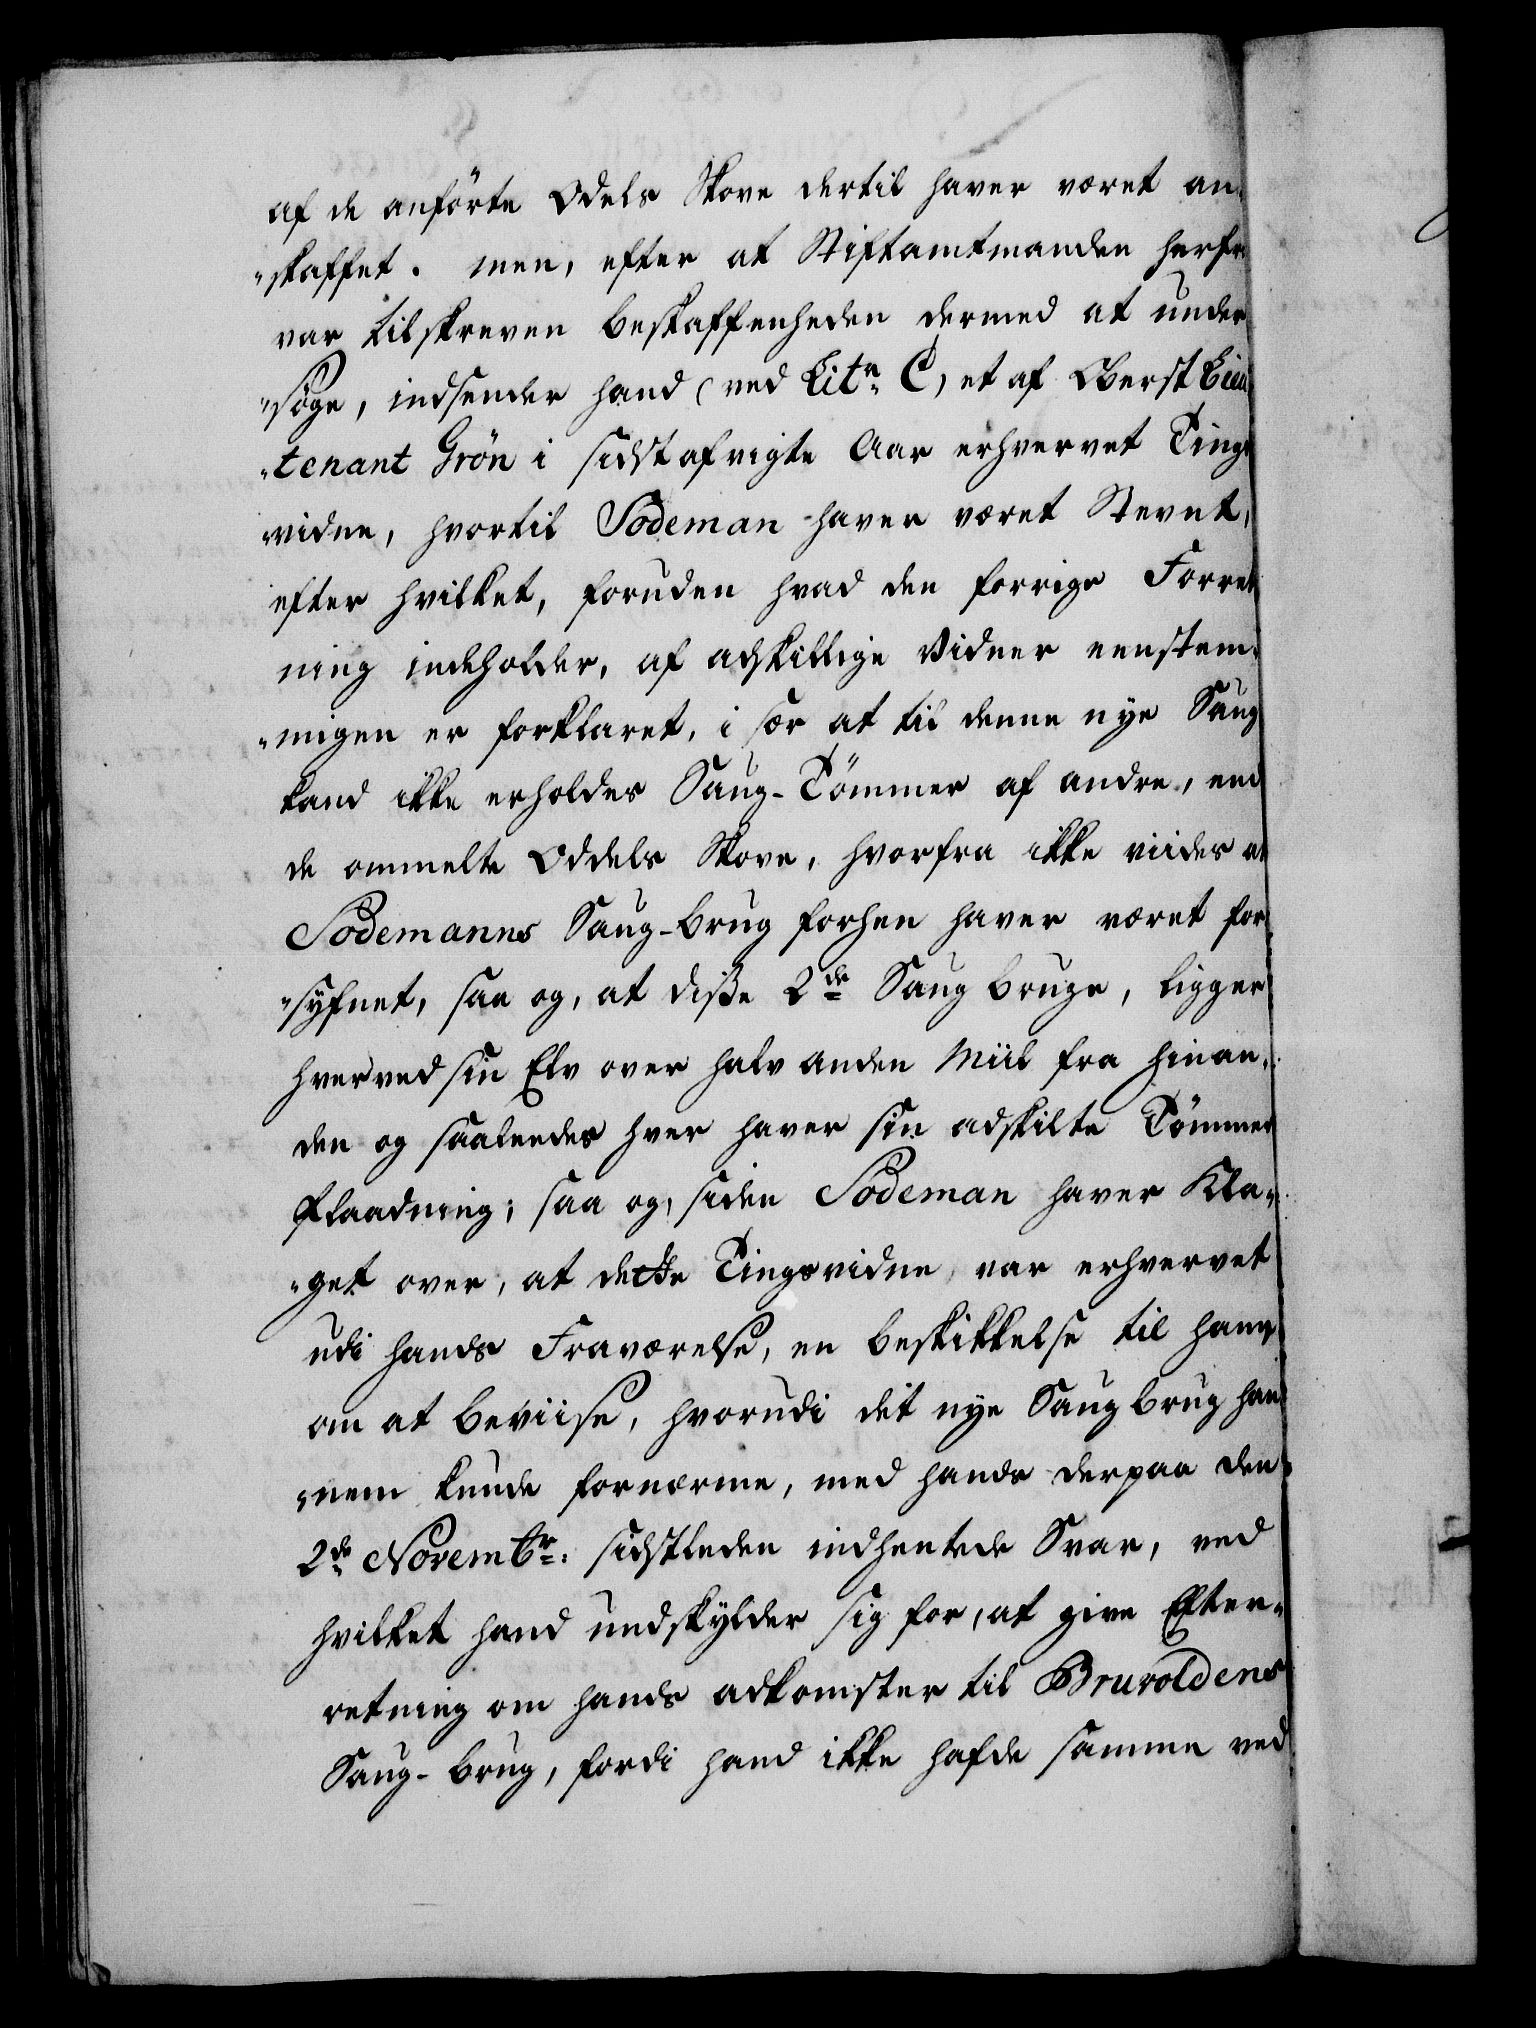 af de anförte Odels Skove dertil haver været an-
„skaffet. men, efter at Stiftamtmanden herfra
var tilskreven beskaffenheden dermed at under
„söge, indsender hand (ved Litr. C, et af Oberst Lieu
„tenant Grön i sidst afvigte Aar erhvervet Tings
„vidne, hvortil Sodeman haver været Stevnt,
efter hvilket, foruden hvad den forrige Forret
ning indeholder, af adskillige Vidner eenstem-
„migen er forklaret, i sær at til denne nye Saug
kand ikke erholdes Saug-Tömmer af andre, end
de ommelte Oddels Skove, hvorfra ikke viides at
Sodemanns Saug-brug forhen haver været for
„syfnet, saa og, at diße 2de Saugbruge, ligger
hver ved sin Elv over halv anden Miil fra hinan-
den og saaleedes hver haver sin adskilte Tömmer
Flaadning; saa og, siden Sodeman haver Kla-
„get over, at dette Tingsvidne var erhvervet
udi hands Fraværelse, en beskikkelse til ham
om at beviise, hvorudi dit nye Saugbrug han
„nem kunde fornærme, med hands derpaa den
2de Novembr. sidstleden indhentede Svar, ved
hvilket hand undskylder sig for, at give Efter-
retning om hands adkomster til Bruvoldens
Saug-brug, fordi hand ikke hafde samme ved